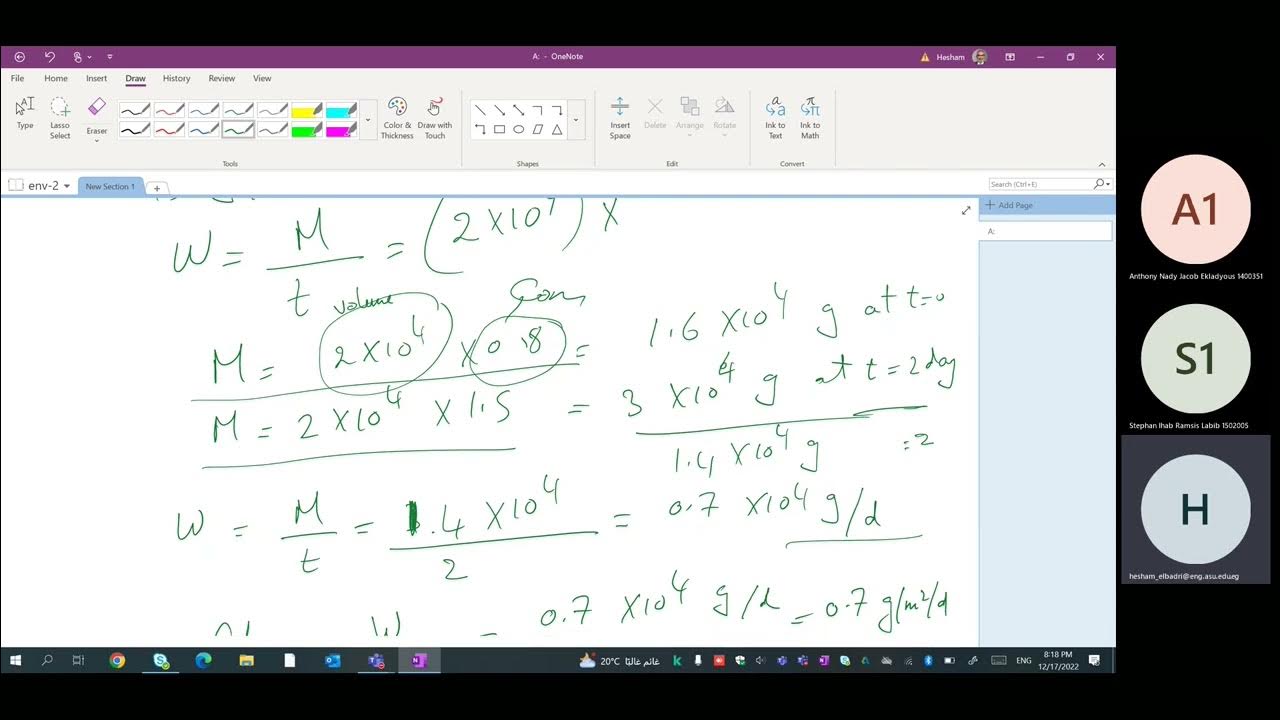 A: - OneNote
Hesham
File Home Insert Draw History Review View
Type
Lasso Select
Eraser
Color & Thickness
Draw with Touch
Insert Space
Delete
Arrange
Rotate
Ink to Text
Ink to Math
Tools
Shapes
Edit
Convert
env-2
New Section 1
Search (Ctrl+E)
Add Page
A:
W = M / t = (2 X10 ) X
volume
M = 2 X10^4 X 0.8 = 1.6 X10^4 g at t=0
M = 2 X10^4 X 1.5 = 3 X10^4 g at t = 2 day
1.4 X10^4 g = 2
W = M / t = 1.4 X10^4 / 2 = 0.7 X10^4 g/d
W = 0.7 X10^4 g/d = 0.7 g/m²/d
A1
Anthony Nady Jacob Ekladyous 1400351
S1
Stephan Ihab Ramsis Labib 1502005
H
hesham_elbadri@eng.asu.edu.eg
20°C غائم غالبًا
ENG
8:18 PM
12/17/2022